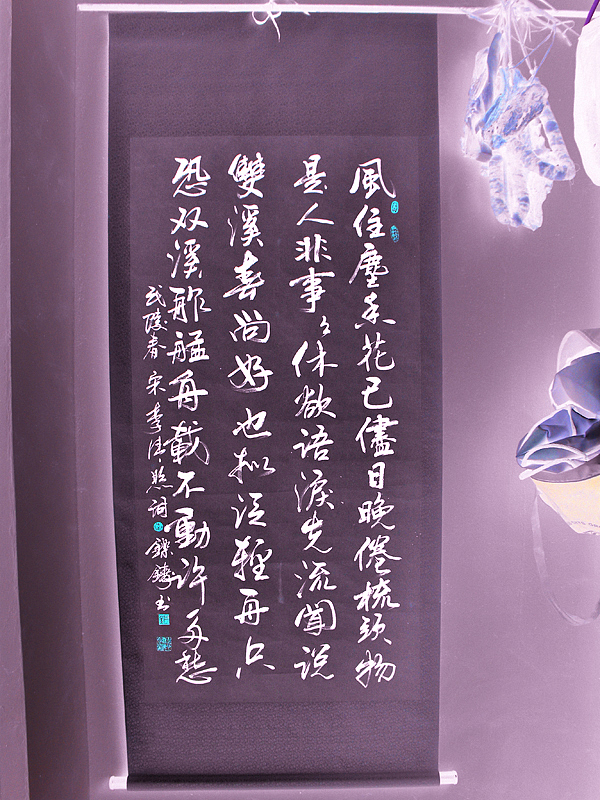 風住塵香花已儘日晚倦梳頭物
是人非事々休欲語淚先流聞说
雙溪春尚好也拟泛輕舟只
恐双溪舴艋舟載不動許多愁
武陵春 宋李清照詞 书